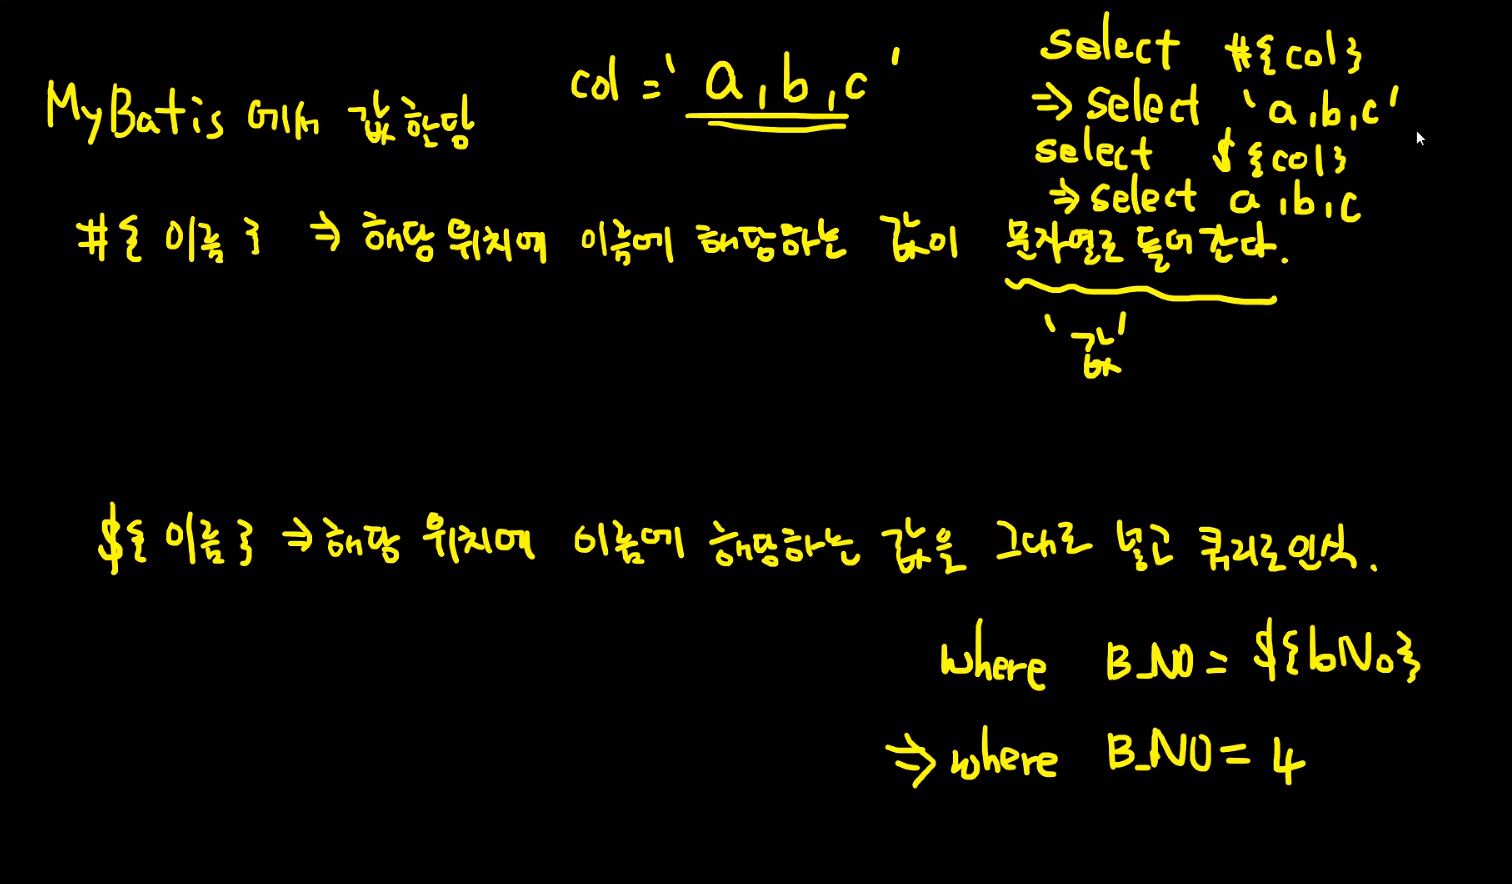 MyBatis 에서 값할당
col = ' a,b,c '
select #{col}
⇒ select 'a,b,c'
select ${col}
⇒ select a,b,c
#{이름} ⇒ 해당 위치에 이름에 해당하는 값이 문자열로 들어간다.
'값'
${이름} ⇒ 해당 위치에 이름에 해당하는 값을 그대로 넣고 쿼리로 인식.
where B_NO = ${bNo}
⇒ where B_NO = 4